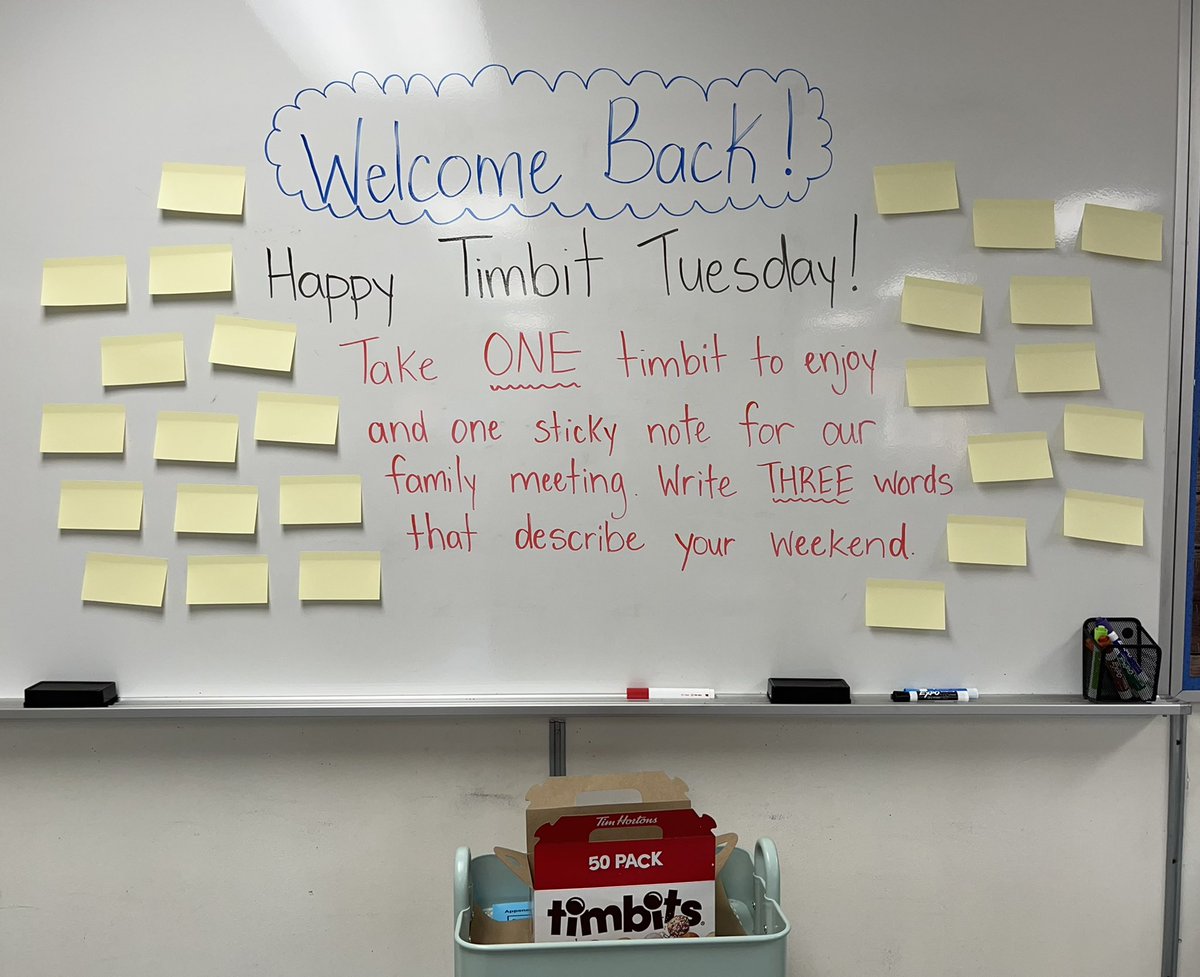 Welcome Back!
Happy Timbit Tuesday!
Take ONE timbit to enjoy
and one sticky note for our
family meeting. Write THREE words
that describe your weekend.
EXPO
Tim Hortons
50 PACK
timbits